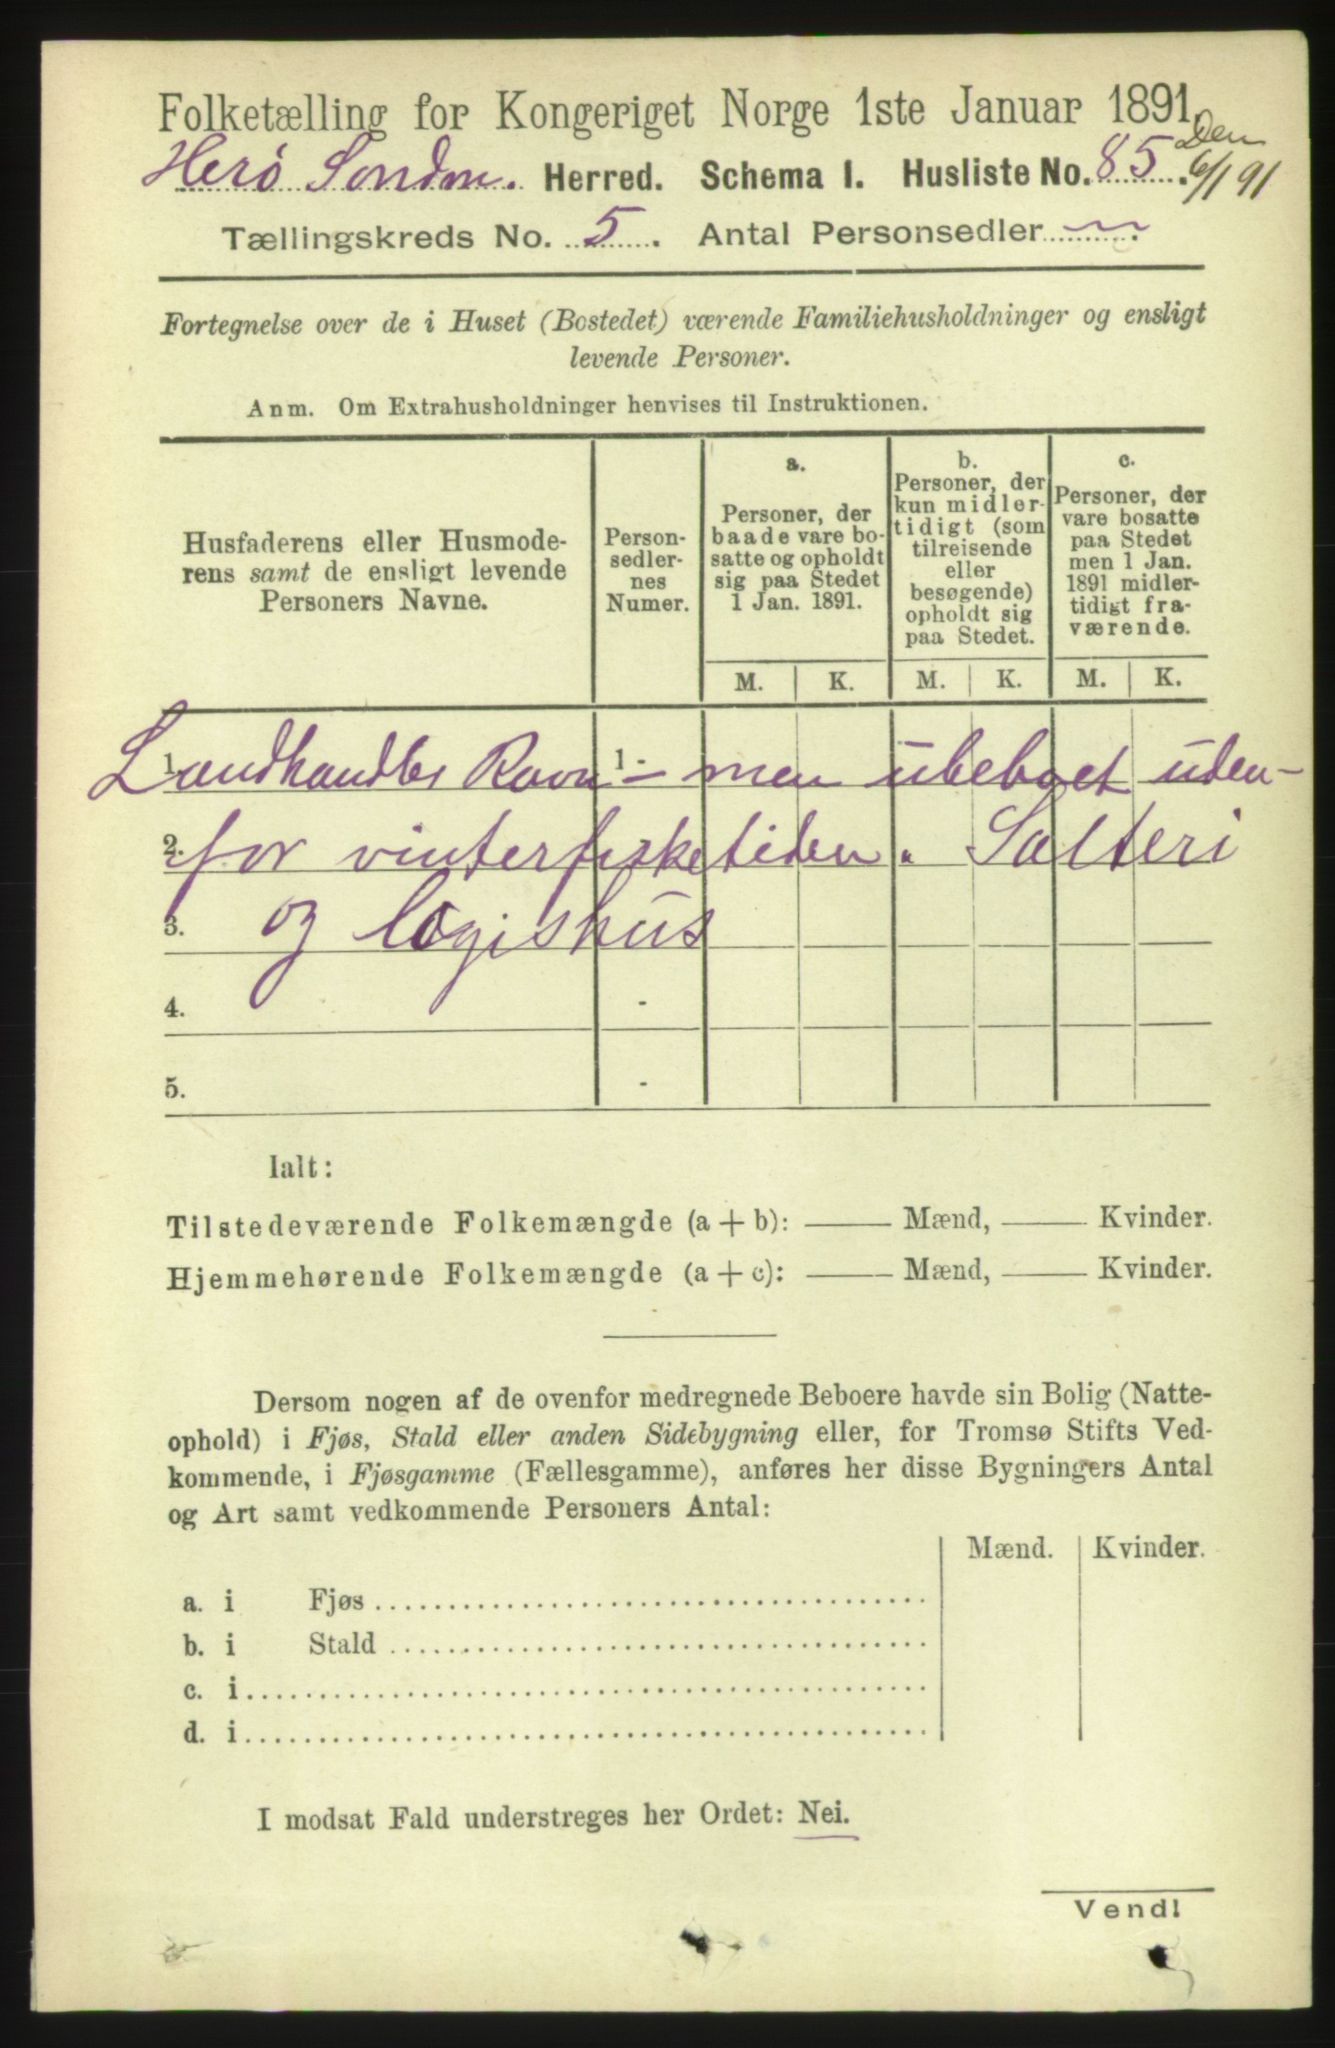 Folketælling for Kongeriget Norge 1ste Januar 1891.
Herø Søndm. Herred. Schema I. Husliste No. 85. Den 6/1 91
Tællingskreds No. 5. Antal Personsedler
Fortegnelse over de i Huset (Bostedet) værende Familiehusholdninger og ensligt
levende Personer.
Anm. Om Extrahusholdninger henvises til Instruktionen.
Husfaderens eller Husmode-
rens samt de ensligt levende
Personers Navne.
Person-
sedler-
nes
Numer.
a.
Personer, der
baade vare bo-
satte og opholdt
sig paa Stedet
1 Jan. 1891.
b.
Personer, der
kun midler-
tidigt (som
tilreisende
eller
besøgende)
opholdt sig
paa Stedet.
c.
Personer, der
vare bosatte
paa Stedet
men 1 Jan.
1891 midler-
tidigt fra-
værende.
M. K. M. K. M. K.
1. Landhandler Ravn 1 - men ubeboet uden-
2. for vinterfisketiden. Salteri
3. og logishus
4. -
5. -
Ialt:
Tilstedeværende Folkemængde (a + b): —— Mænd, —— Kvinder.
Hjemmehørende Folkemængde (a + c): —— Mænd, —— Kvinder.
Dersom nogen af de ovenfor medregnede Beboere havde sin Bolig (Natte-
ophold) i Fjøs, Stald eller anden Sidebygning eller, for Tromsø Stifts Ved-
kommende, i Fjøsgamme (Fællesgamme), anføres her disse Bygningers Antal
og Art samt vedkommende Personers Antal:
Mænd. Kvinder.
a. i Fjøs
b. i Stald
c. i
d. i
I modsat Fald understreges her Ordet: Nei.
Vend!